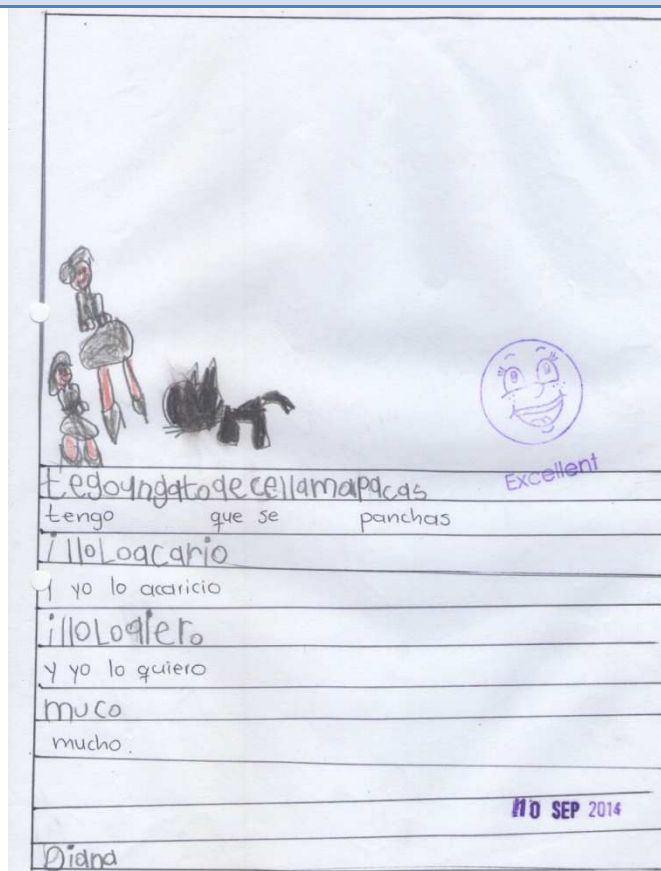 Excellent
tegoyngatoqecellamapacas
tengo que se panchas
illoLoacario
y yo lo acaricio
illoLoqiero
y yo lo quiero
muco
mucho.
10 SEP 2014
Diana